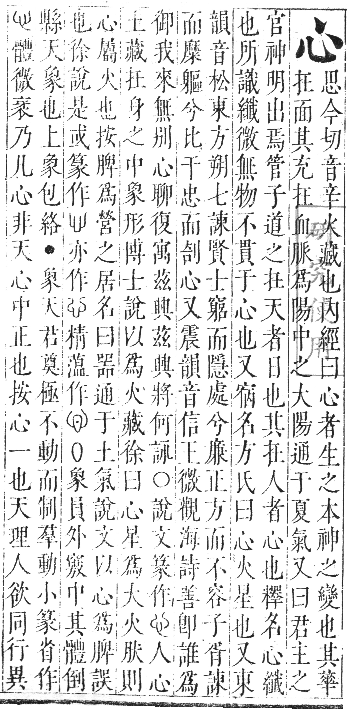 心思今切音辛火藏也內經曰心者生之本神之變也其華
在面其充在血脈爲陽中之大陽通于夏氣又曰君主之
官神明出焉管子道之在天者日也其在人者心也釋名心纖
也所識纖微無物不貫于心也又宿名方氏曰心火星也又東
韻音松東方朔七諫賢士窮而隱處兮廉正方而不容子胥諫
而糜軀兮比干忠而剖心又震韻音信王微觀海詩善卽誰爲
御我來無別心聊復寓茲興茲興將何詠〇說文篆作人心
土藏在身之中象形博士說以爲火藏徐曰心星爲大火肰則
心屬火也按脾爲營之居名曰器通于土氣說文以心爲脾誤
也徐說是或篆作亦作精薀作象員外竅中其體倒
縣天象也上象包絡●象天君奠極不動而制羣動小篆省作
體微衺乃儿心非天心中正也按心一也天理人欲同行異